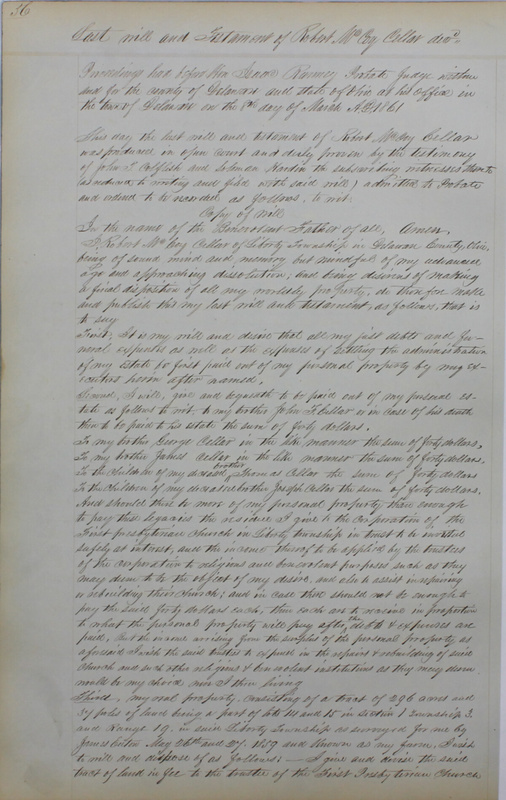 36
Last will and Testament of Robert McCoy Cellar decd.
Proceedings had before the Isaac Ranney Probate Judge within
and for the county of Delaware and state of Ohio at his office in
the town of Delaware on the 8th day of March A.D. 1861
This day the last will and testament of Robert McCoy Cellar
was produced in open Court and duly proven by the testimony
of John T. and Solomon Hardin the subscribing witnesses thereto
(as reduced to writing and filed with said will) admitted to Probate
and ordered to be recorded as follows, to wit:
Copy of Will
In the name of the Benevolent Father of all, Amen,
I, Robert McCoy Cellar of Liberty Township in Delaware County, Ohio,
being of sound mind and memory but mindful of my advanced
age and approaching dissolution; and being desirous of making
a final disposition of all my worldly property, do therefore make
and publish this my last will and testament, as follows, that is
to say
First; It is my will and desire that all my just debts and fu-
neral expenses as well as the expenses of settling the administration
of my estate be first paid out of my personal property by my ex-
ecutors herein after named.
Second, I will, give and bequeath to be paid out of my personal es-
tate as follows to wit: to my brother John F. Cellar or in case of his death
then to be paid to his estate the sum of forty dollars.
To my brother George Cellar in the like manner the sum of forty dollars,
To my brother James Cellar in the like manner the sum of forty dollars,
To the children of my deceased brother Thomas Cellar the sum of forty dollars
To the children of my deceased brother Joseph Cellar the sum of forty dollars.
And should there be more of my personal property than enough
to pay these legacies the residue I give to the Corporation of the
First presbyterian Church in Liberty township in trust to be invested
safely at interest, and the income thereof to be applied by the trustees
of the corporation to religious and benevolent purposes such as they
may deem to be the object of my desire, and also to assist in repairing
or rebuilding their Church; and in case there should not be enough to
pay the said forty dollars each, then each are to receive in proportion
to what the personal property will pay after the debts & expenses are
paid, but the income arising from the surplus of the personal property as
aforesaid I wish the said trustees to expend in the repairs & rebuilding of said
Church and such other religious & benevolent institutions as they may deem
would be my desire were I then living
Third. my real property, consisting of a tract of 296 acres and
34 poles of land being a part of lots 14 and 15 in section 1 Township 3
and Range 19. in said Liberty Township as surveyed for me by
James Eaton May 26th and 27. 1859 and known as my farm, I wish
to will and dispose of as follows: — I give and devise the said
tract of land in fee to the trustees of the First Presbyterian Church